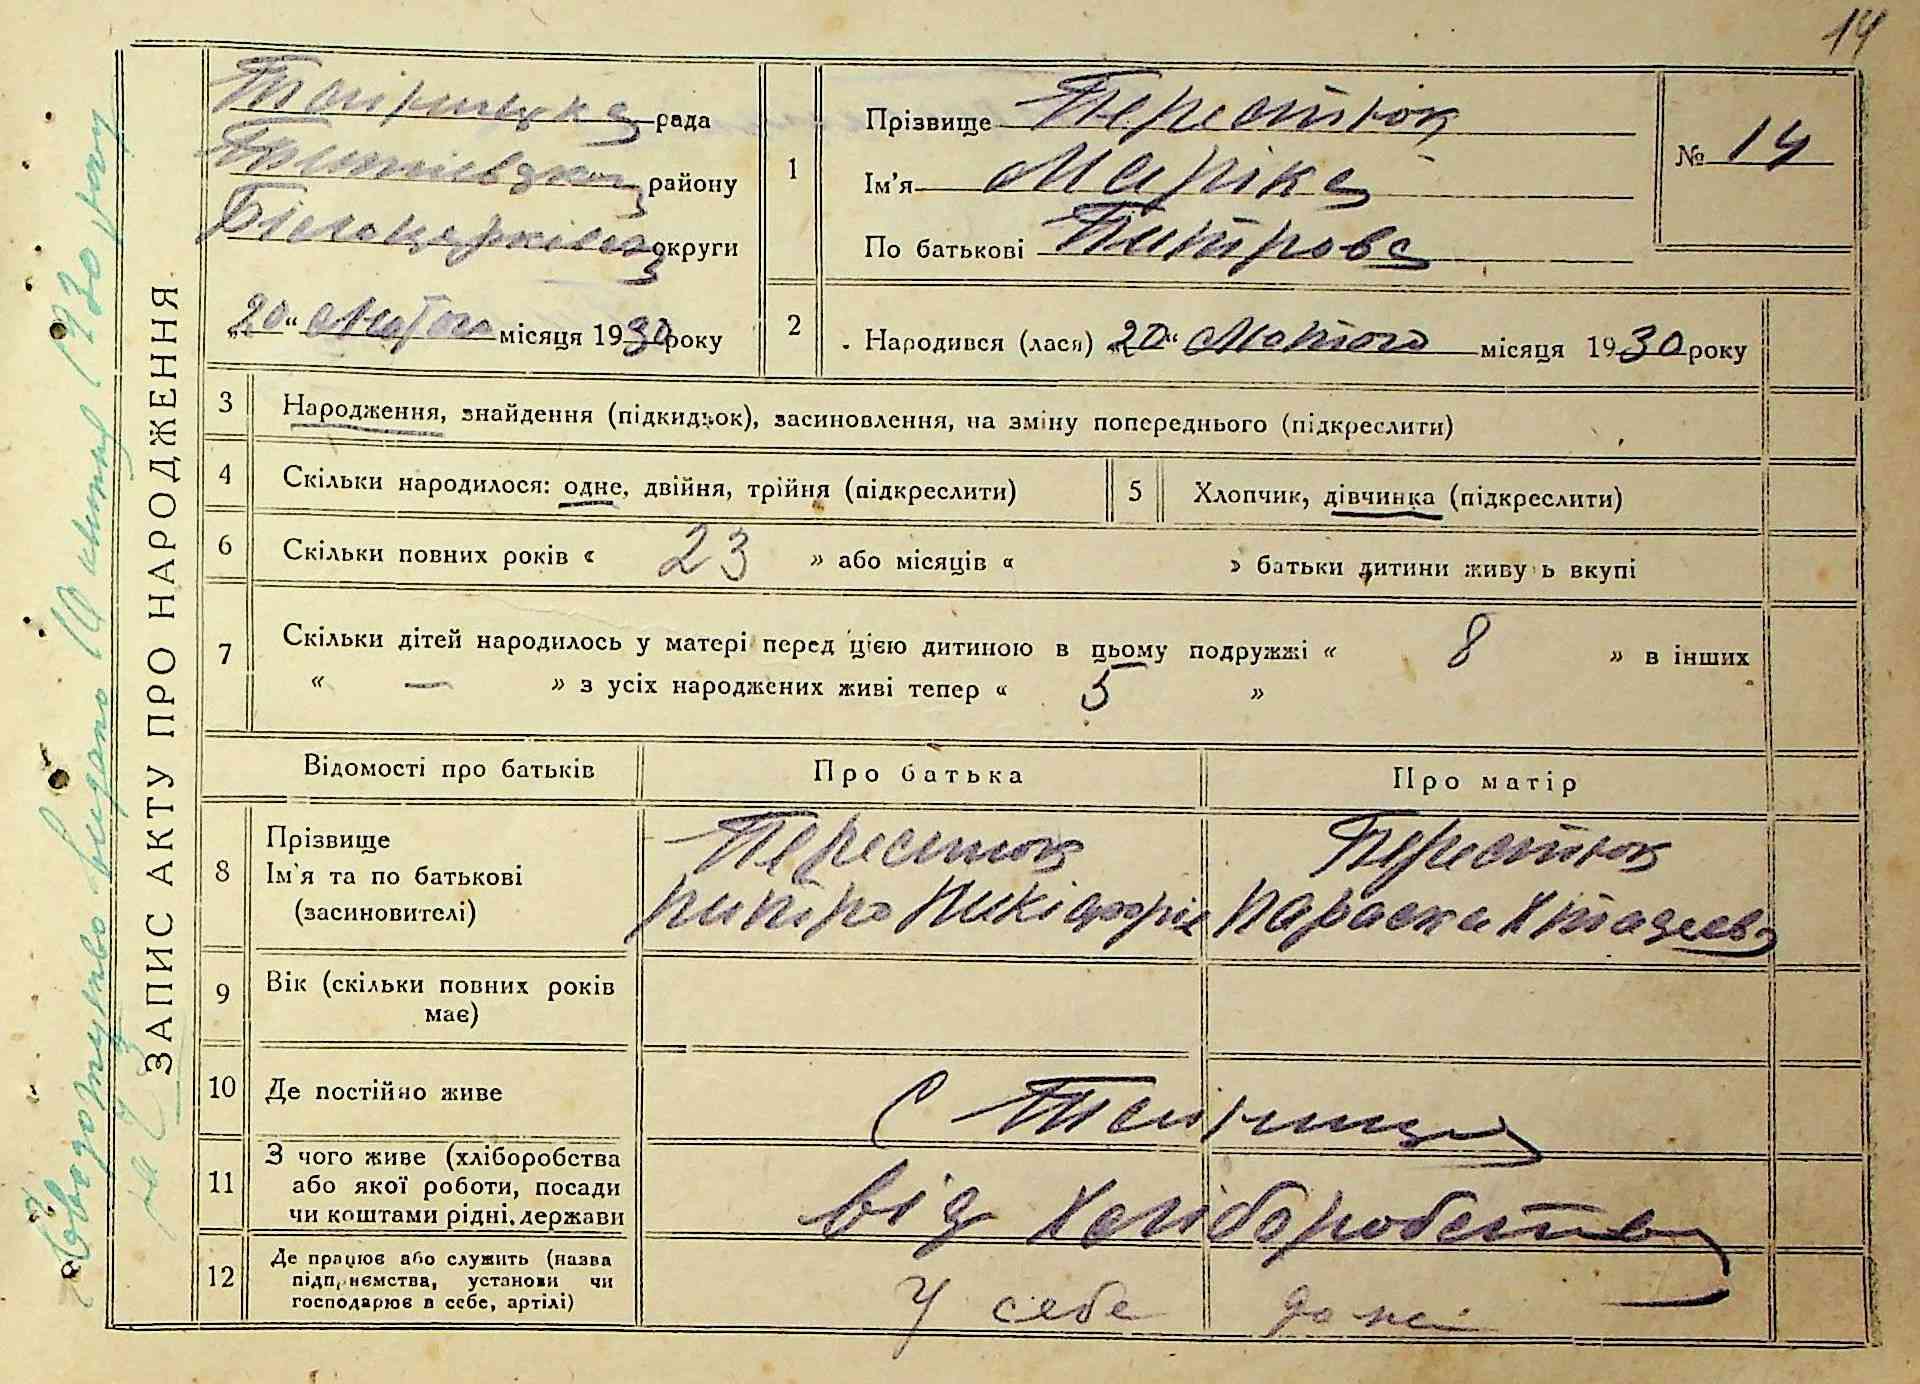 14
ЗАПИС АКТУ ПРО НАРОДЖЕННЯ
рада
району
Білоцерківської округи
„20“ Лютого місяця 1930 року
1
Прізвище Перестюк
Ім'я Маріка
По батькові Питрова
№ 14
2
Народився (лася) „20“ Лютого місяця 1930 року
3
Народження, знайдення (підкидьок), засиновлення, на зміну попереднього (підкреслити)
4
Скільки народилося: одне, двійня, трійня (підкреслити)
5
Хлопчик, дівчинка (підкреслити)
6
Скільки повних років « 23 » або місяців « » батьки дитини живу ь вкупі
7
Скільки дітей народилось у матері перед цією дитиною в цьому подружжі « 8 » в інших
« — » з усіх народжених живі тепер « 5 »
Відомості про батьків
Про батька
Про матір
8
Прізвище
Ім'я та по батькові
(засиновителі)
Перестюк
Питро Никіфорів
Перестюк
Параска
9
Вік (скільки повних років
має)
10
Де постійно живе
С
11
З чого живе (хліборобства
або якої роботи, посади
чи коштами рідні, держави
від Хліборобства
12
Де працює або служить (назва
підприємства, установи чи
господарює в себе, артілі)
У себе дома
видано 10 1930 року